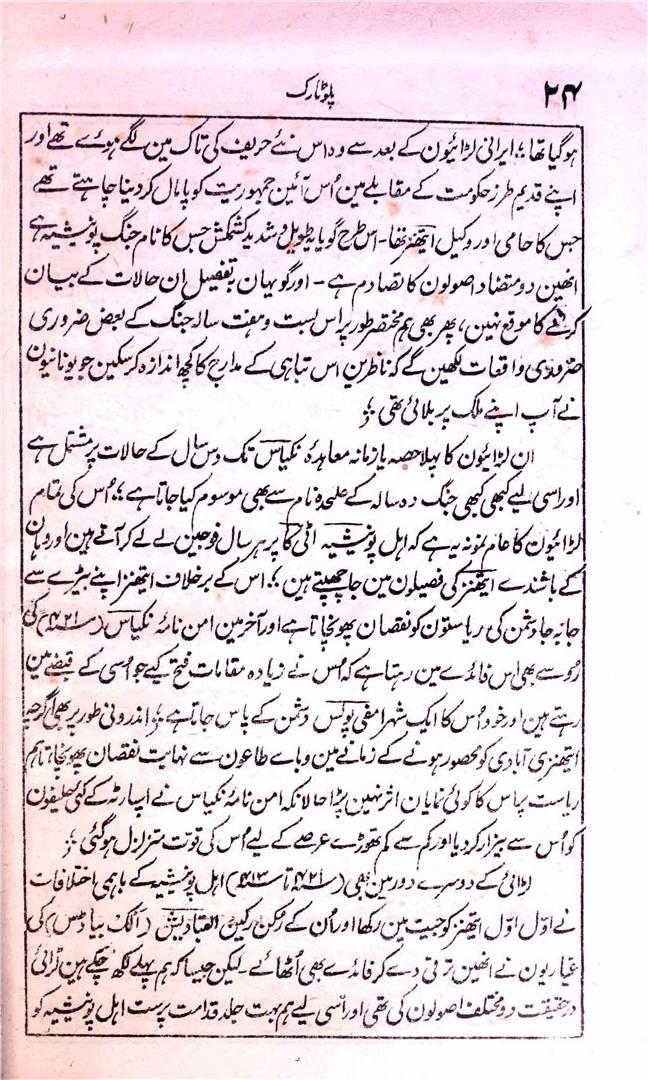 ۲۴
پلوٹارک
ہوگیا تھا ؛ ایرانی لڑائیون کے بعد سے وہ اس نئے حریف کی تاک مین لگے ہوئے تھے اور
اپنے قدیم طرز حکومت کے مقابلے مین اُس آئین جمہوریت کو پامال کر دینا چاہتے تھے
جس کا حامی اور وکیل ایتھنز تھا۔ اس طرح گویا یہ طویل و شدید کشمکش جس کا نام جنگ پونیشیہ ہے
انھین دو متضاد اصولون کا تصادم ہے ۔ اور گو یہان بتفصیل ان حالات کے بیان
کرنے کا موقع نہین ، پھر بھی ہم مختصر طور پر اس بست و ہفت سالہ جنگ کے بعض ضروری
ضروری واقعات لکھین گے کہ ناظرین اس تباہی کے مدارج کا کچھ اندازہ کر سکین جو یونانیون
نے آپ اپنے ملک پر بلائی تھی ؛
ان لڑائیون کا پہلا حصہ یا زمانہ معاہدۂ نکیاس تک دس سال کے حالات پر مشتمل ہے
اور اسی لیے کبھی کبھی جنگ دہ سالہ کے علحدہ نام سے بھی موسوم کیا جاتا ہے ؛ اُس کی تمام
لڑائیون کا عام نمونہ یہ ہے کہ اہل پونیشیہ اٹی کا پر ہر سال فوجین لے لے کر آتے ہین اور وہان
کے باشندے ایتھنز کی فصیلون مین جا چھپتے ہین ؛ اس کے برخلاف ایتھنز اپنے بیڑے سے
جا بہ جا دشمن کی ریاستون کو نقصان پھونچاتا ہے اور آخر مین امن نامۂ نکیاس (سنہ ۴۲۱) کی
رُو سے بھی اس فائدے مین رہتا ہے کہ اُس نے زیادہ مقامات فتح کیے جو اُسی کے قبضے مین
رہتے ہین اور خود اُس کا ایک شہر امفی پولس دشمن کے پاس جاتا ہے ؛ اندرونی طور پر بھی اگرچہ
ایتھنزی آبادی کو محصور ہونے کے زمانے مین وباے طاعون سے نہایت نقصان پھونچا تاہم
ریاست پر اس کا کوئی نمایان اثر نہین پڑا حالانکہ امن نامۂ نکیاس نے اسپارٹہ کے کئی حلیفون
کو اُس سے بیزار کر دیا اور کم سے کم تھوڑے عرصے کے لیے اُس کی قوت متزلزل ہو گئی ؛
لڑائی کے دوسرے دور مین بھی (سنہ ۴۲۱ تا سنہ ۴۱۳) اہل پونیشیہ کے باہمی اختلافات
نے اوّل اوّل ایتھنز کو جیت مین رکھا اور اُن کے رکن رکین القبادیش (الک بیادس) کی
عیاریون نے انھین ترقی دے کر فائدے بھی اُٹھائے ۔ لیکن جیسا کہ ہم پہلے لکھ چکے ہین لڑائی
درحقیقت دو مختلف اصولون کی تھی اور اسی لیے ہم بہت جلد قدامت پرست اہل پونیشیہ کو